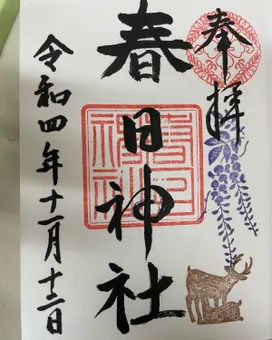 奉拝
春日神社
令和四年十一月十三日